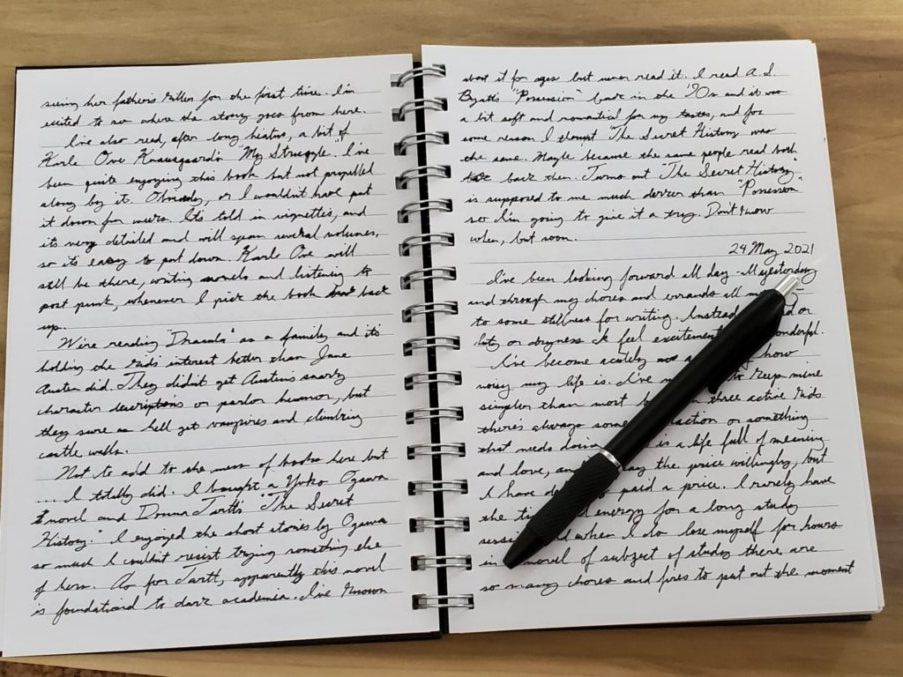 seeing her father's killer for the first time. I'm
excited to see where the story goes from here.
I've also read, after long hiatus, a bit of
Karle Ove Knausgaard's "My Struggle." I've
been quite enjoying this book but not propelled
along by it. Obviously, or I wouldn't have put
it down for years. It's told in vignettes, and
its very detailed and will span several volumes,
so its easy to put down. Karle Ove will
still be there, writing novels and listening to
post punk, whenever I pick the book back
up.
We're reading "Dracula" as a family and its
holding the kids interest better than Jane
Austen did. They didn't get Austen's snarky
character descriptions or parlor humor, but
they sure as hell get vampires and climbing
castle walls.
Not to add to the mess of books here but
.... I totally did. I bought a Yoko Ogawa
novel and Donna Tartt's "The Secret
History." I enjoyed the short stories by Ogawa
so much I couldn't resist trying something else
of hers. As for Tartt, apparently this novel
is foundational to dark academia. I've known
about it for ages but never read it. I read A.S.
Byatt's "Possession" back in the '90s and it was
a bit soft and romantical for my tastes, and for
some reason I thought "The Secret History" was
the same. Maybe because the same people read both
back then. Turns out "The Secret History"
is supposed to me much darker than "Possession"
so I'm going to give it a try. Don't know
when, but soon.
24 May 2021
I've been looking forward all day - all yesterday
and through my chores and errands all
to some stillness for writing. Instead
or dryness I feel excitement
I've become acutely how
noisy my life is. I've to keep mine
simpler than most three active kids
there's always some or something
that needs doing is a life full of meaning
and love, and the price willingly, but
I have paid a price. I rarely have
the energy for a long study
and when I do lose myself for hours
in novel of subject of study there are
so many chores and fires to put out the moment